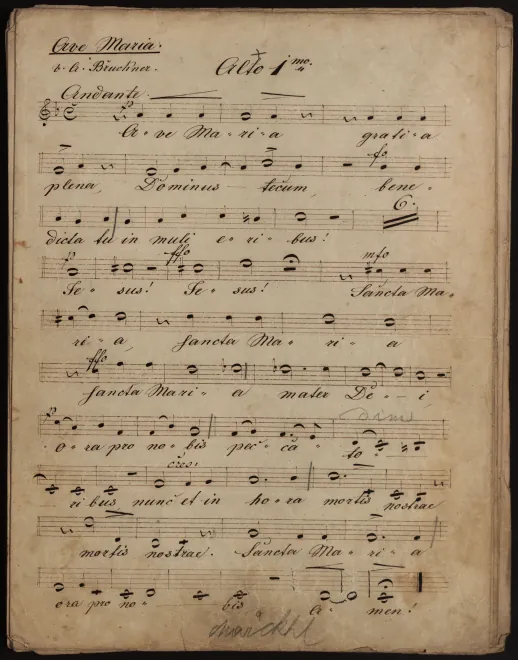 Ave Maria.
v. A. Bruckner.
Alto 1mo.
Andante.
A-ve Ma-ri-a gratia
fo
plena, Dominus tecum, bene-
6.
dicta tu in muli e-ri-bus!
ffo
mfo
Je-sus! Je-sus! Sancta Ma-
ri-a, Sancta Ma-ri-a
ffo
Sancta Mari-a mater De-i,
dim
o-ra pro no-bis pec-ca-to-
cres:
ribus nunc et in ho-ra mortis nostrae
mortis nostrae. Sancta Ma-ri-a
ora pro no-bis A-men!